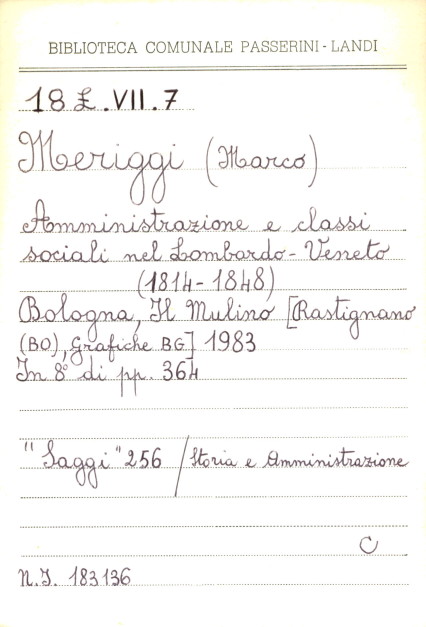 BIBLIOTECA COMUNALE PASSERINI - LANDI
18 £.VII.7
Meriggi (Marco)
Amministrazione e classi
sociali nel Lombardo-Veneto
(1814-1848)
Bologna, Il Mulino [Rastignano
(BO), Grafiche BG] 1983
In 8° di pp. 364
"Saggi" 256 / Storia e Amministrazione
C
N.I. 183136